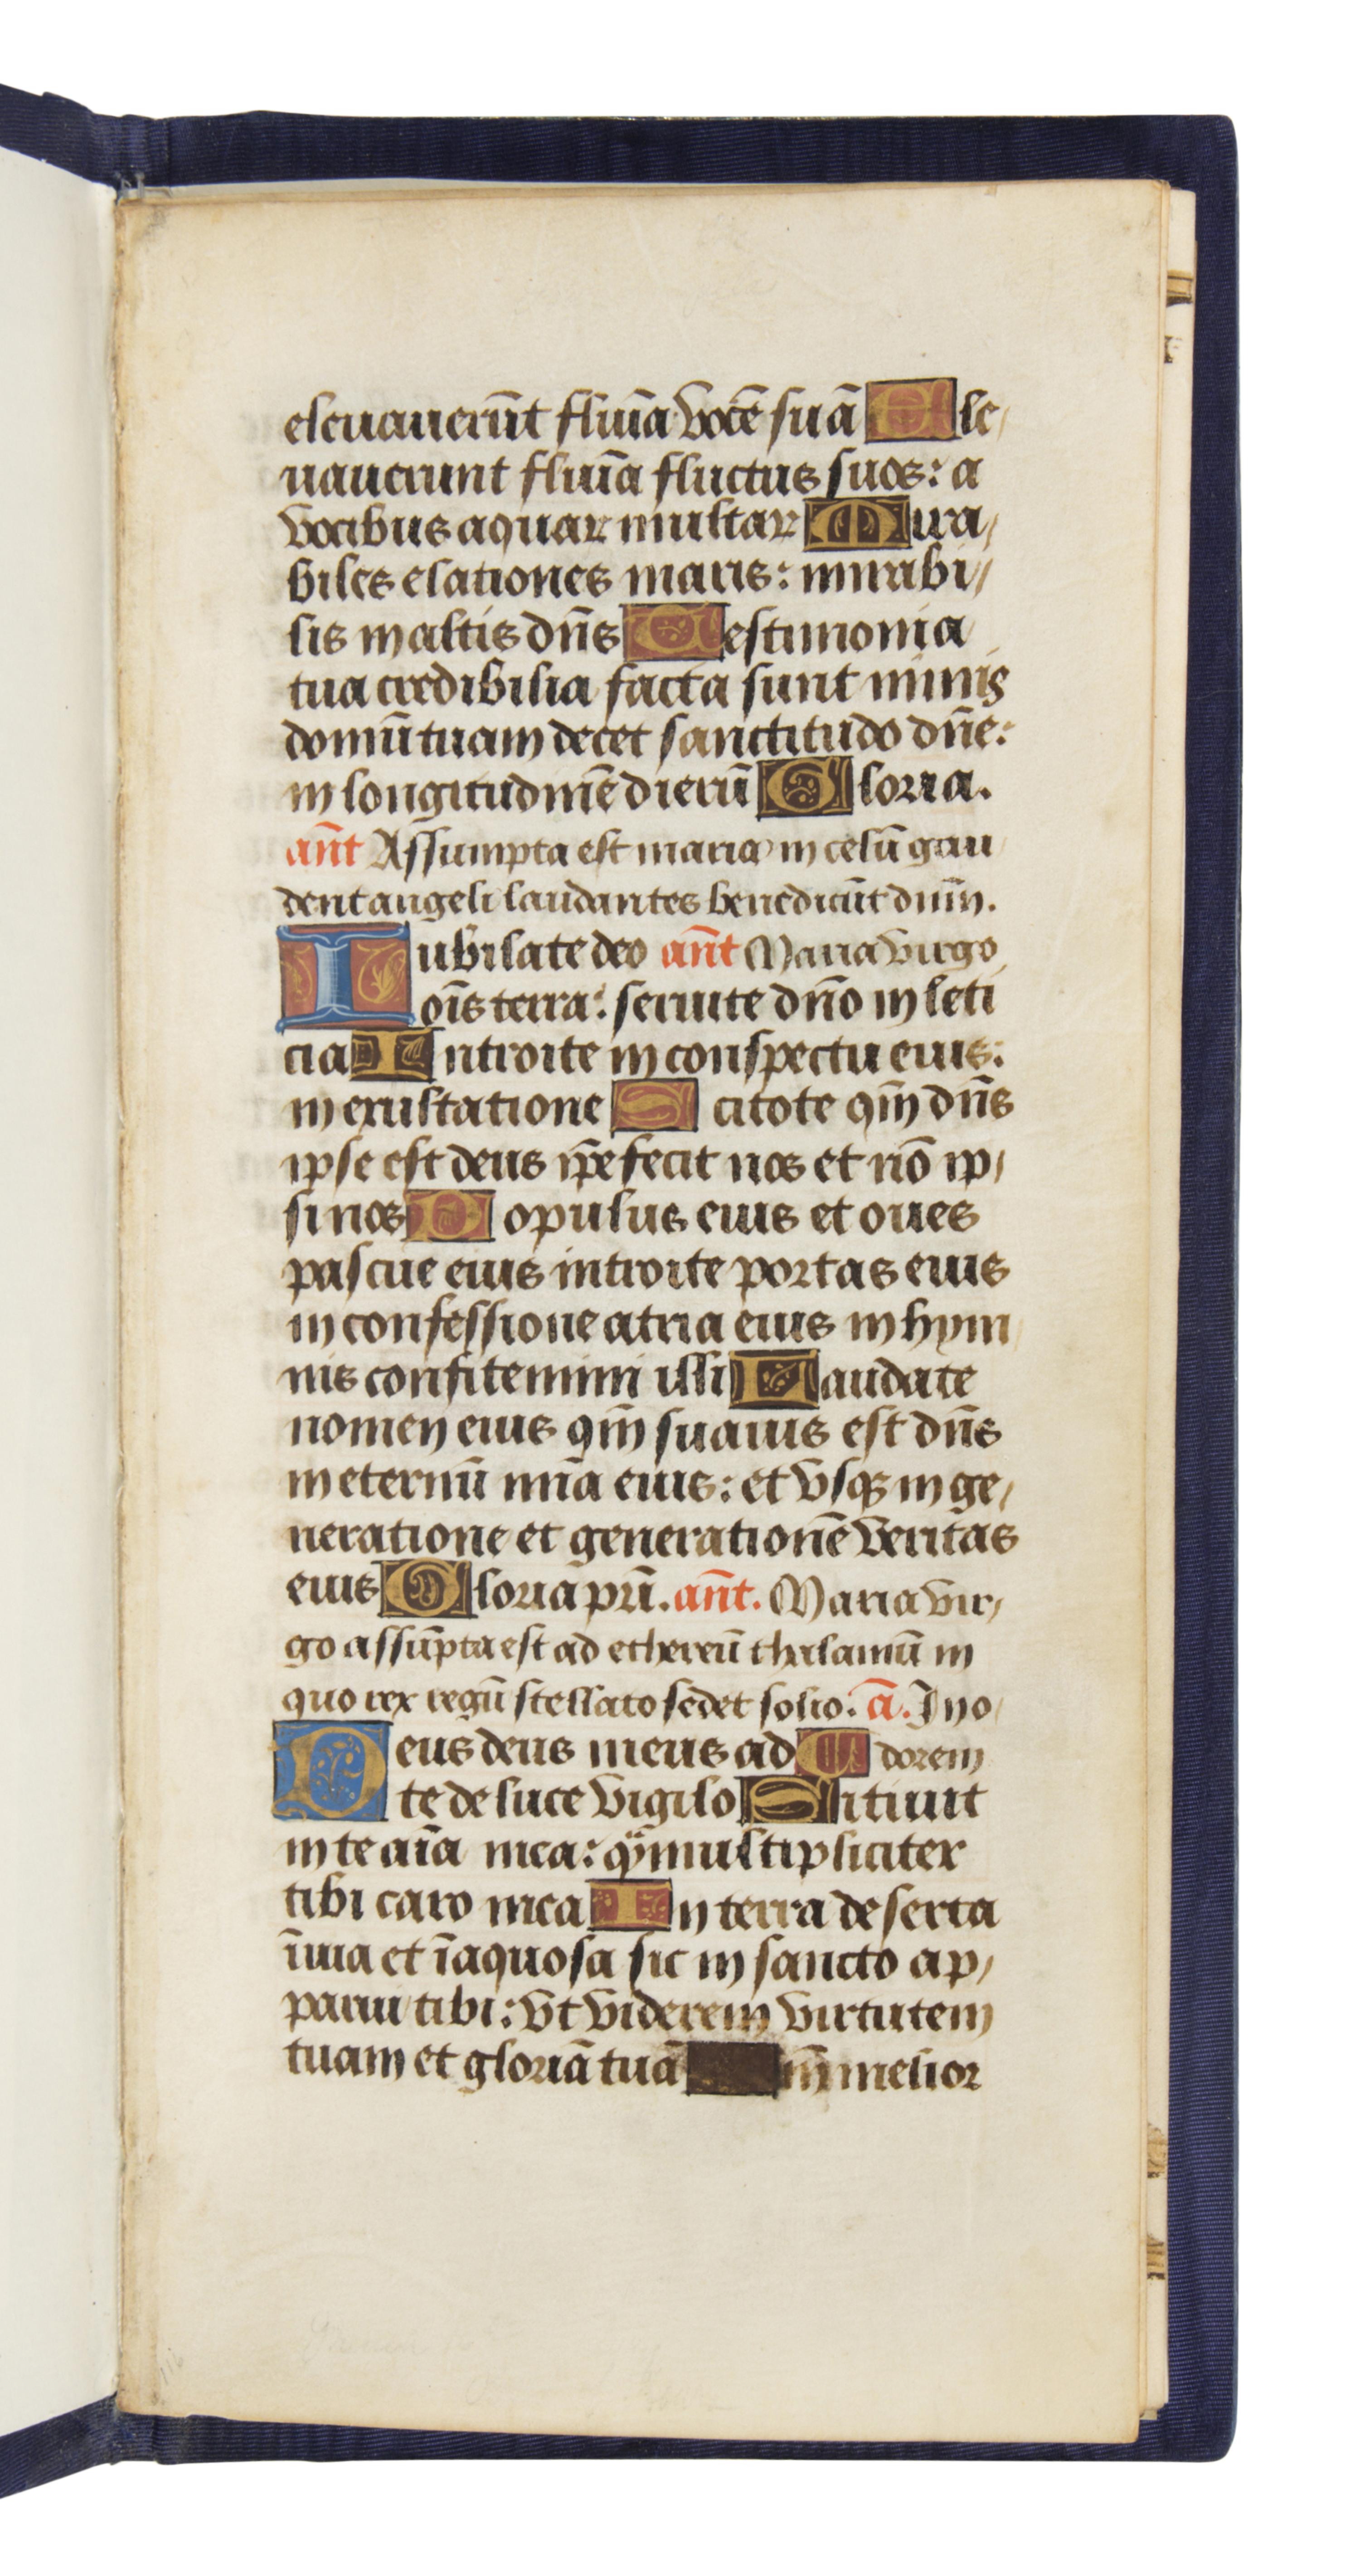 eleuauerūt fluīa vocē suā Ele,
uauerunt fluīa fluctus suos: a
vocibus aquaꝝ multaꝝ Mira,
biles elationes maris: mirabi,
lis in altis dn̄s Testimonia
tua credibilia facta sunt nimis
domū tuam decet sanctitudo dn̄e:
in longitudinē dierū Gloria.
an̄t Assumpta est maria in celū gau
dent angeli laudantes benedicūt dn̄m.
Iubilate deo an̄t Maria virgo
oīs terra: seruite dn̄o in leti
cia Introite in conspectu eius:
in exultatione Scitote qm̄ dn̄s
ipse est deus ip̄e fecit nos et nō ip,
si nos Populus eius et oues
pascue eius introite portas eius
in confessione atria eius in hym
nis confitemini illi Laudate
nomen eius qm̄ suauis est dn̄s
in eternū mīa eius: et vsqꝫ in ge,
neratione et generationē veritas
eius Gloria pr̄i. an̄t. Maria vir,
go assūpta est ad ethereū thalamū in
quo rex regū stellato sedet solio. ā. In o
Deus deus meus ad dorem
te de luce vigilo Sitiuit
in te aīa mea: qͣm multipliciter
tibi caro mea In terra deserta
īuia et īaquosa sic in sancto ap,
parui tibi: vt viderem virtutem
tuam et gloriā tuā m̄ melior